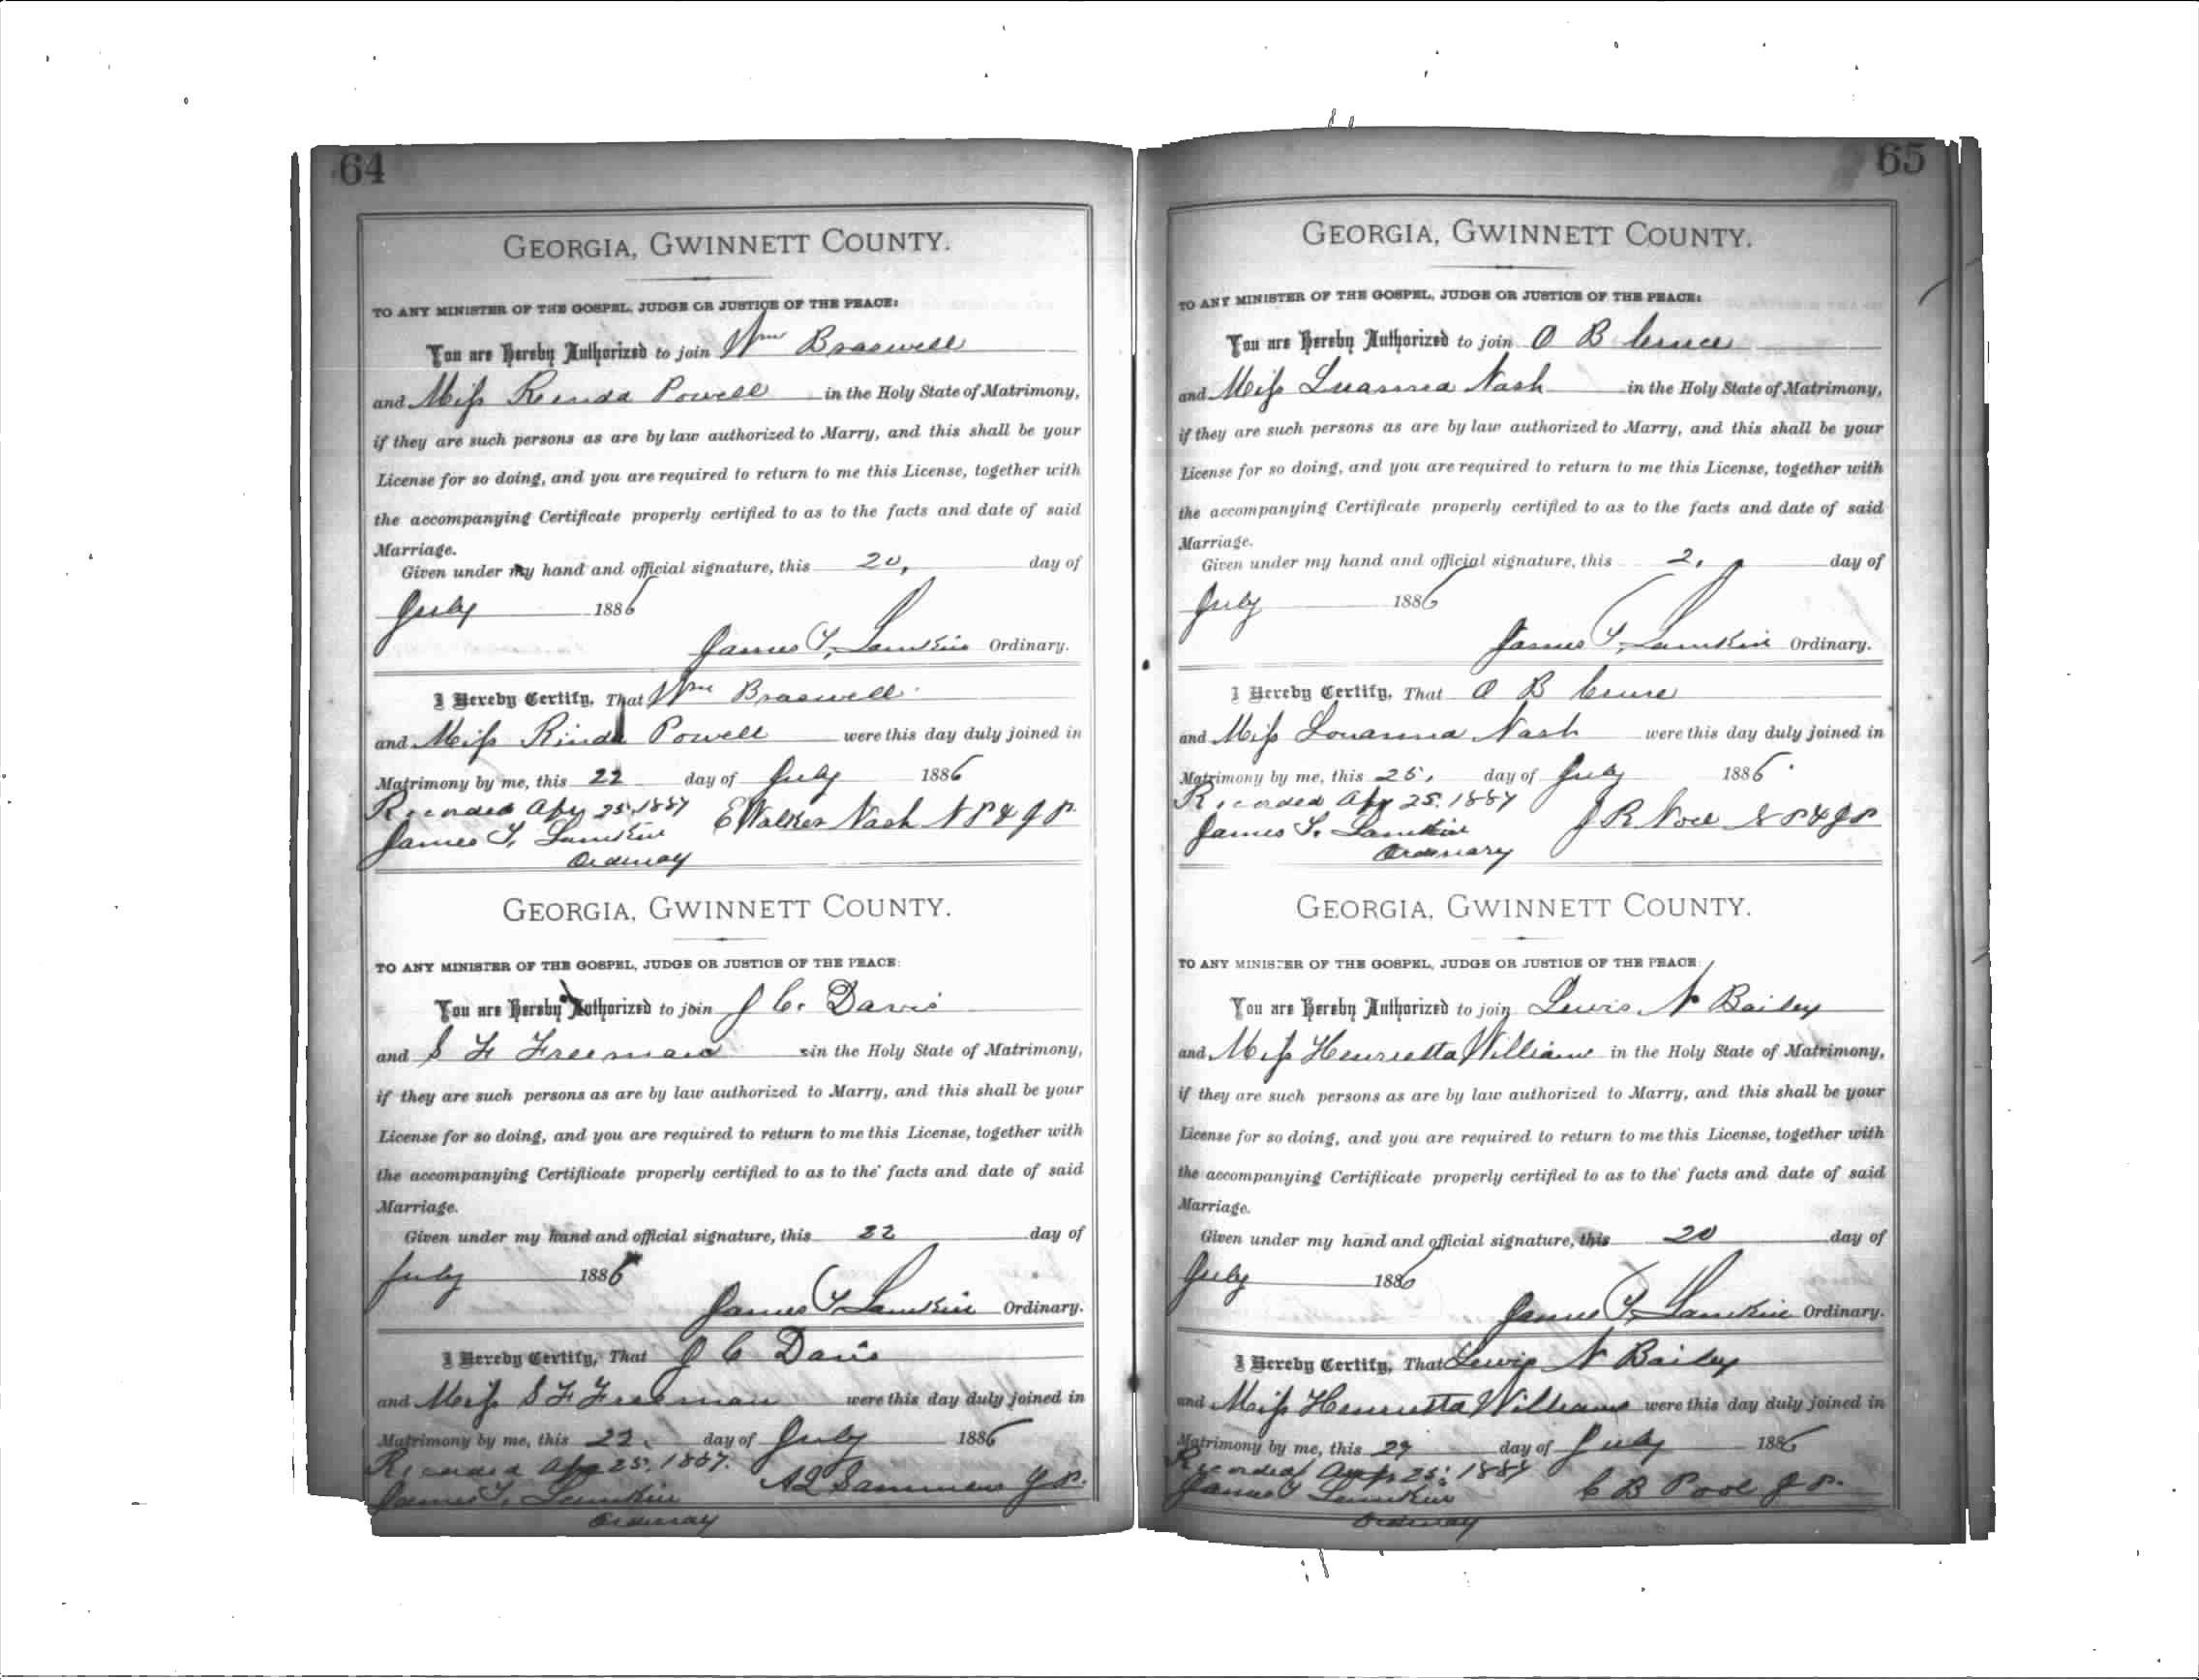 64
GEORGIA, GWINNETT COUNTY.
TO ANY MINISTER OF THE GOSPEL, JUDGE OR JUSTICE OF THE PEACE:
You are Hereby Authorized to join Wm Braswell
and Miss Rinda Powell in the Holy State of Matrimony,
if they are such persons as are by law authorized to Marry, and this shall be your
License for so doing, and you are required to return to me this License, together with
the accompanying Certificate properly certified to as to the facts and date of said
Marriage.
Given under my hand and official signature, this 20, day of
July 1886
James T. Lamkin Ordinary.
I Hereby Certify, That Wm Braswell
and Miss Rinda Powell were this day duly joined in
Matrimony by me, this 22 day of July 1886
Recorded Apr 25, 1887
E Walker Nash N P & J P.
James T. Lamkin
Ordinary
GEORGIA, GWINNETT COUNTY.
TO ANY MINISTER OF THE GOSPEL, JUDGE OR JUSTICE OF THE PEACE:
You are Hereby Authorized to join J C. Davis
and S F Freeman in the Holy State of Matrimony,
if they are such persons as are by law authorized to Marry, and this shall be your
License for so doing, and you are required to return to me this License, together with
the accompanying Certifiicate properly certified to as to the facts and date of said
Marriage.
Given under my hand and official signature, this 22 day of
July 1886
James T. Lamkin Ordinary.
I Hereby Certify, That J C Davis
and Miss S F Freeman were this day duly joined in
Matrimony by me, this 22 day of July 1886
Recorded Apr 25, 1887.
A L Sammons J P.
James T. Lamkin
Ordinary
65
GEORGIA, GWINNETT COUNTY.
TO ANY MINISTER OF THE GOSPEL, JUDGE OR JUSTICE OF THE PEACE:
You are Hereby Authorized to join O B Cruce
and Miss Luanna Nash in the Holy State of Matrimony,
if they are such persons as are by law authorized to Marry, and this shall be your
License for so doing, and you are required to return to me this License, together with
the accompanying Certificate properly certified to as to the facts and date of said
Marriage.
Given under my hand and official signature, this 2, day of
July 1886
James T. Lamkin Ordinary.
I Hereby Certify, That O B Cruce
and Miss Louanna Nash were this day duly joined in
Matrimony by me, this 25, day of July 1886
Recorded Apr 25, 1887
J R Noel N P & J P
James T. Lamkin
Ordinary
GEORGIA, GWINNETT COUNTY.
TO ANY MINISTER OF THE GOSPEL, JUDGE OR JUSTICE OF THE PEACE
You are Hereby Authorized to join Lewis N Bailey
and Miss Henrietta Williams in the Holy State of Matrimony,
if they are such persons as are by law authorized to Marry, and this shall be your
License for so doing, and you are required to return to me this License, together with
the accompanying Certifiicate properly certified to as to the facts and date of said
Marriage.
Given under my hand and official signature, this 20 day of
July 1886
James T. Lamkin Ordinary.
I Hereby Certify, That Lewis N Bailey
and Miss Henrietta Williams were this day duly joined in
Matrimony by me, this 29 day of July 1886
Recorded Apr 25, 1887
C B Pool J P.
James T Lamkin
Ordinary